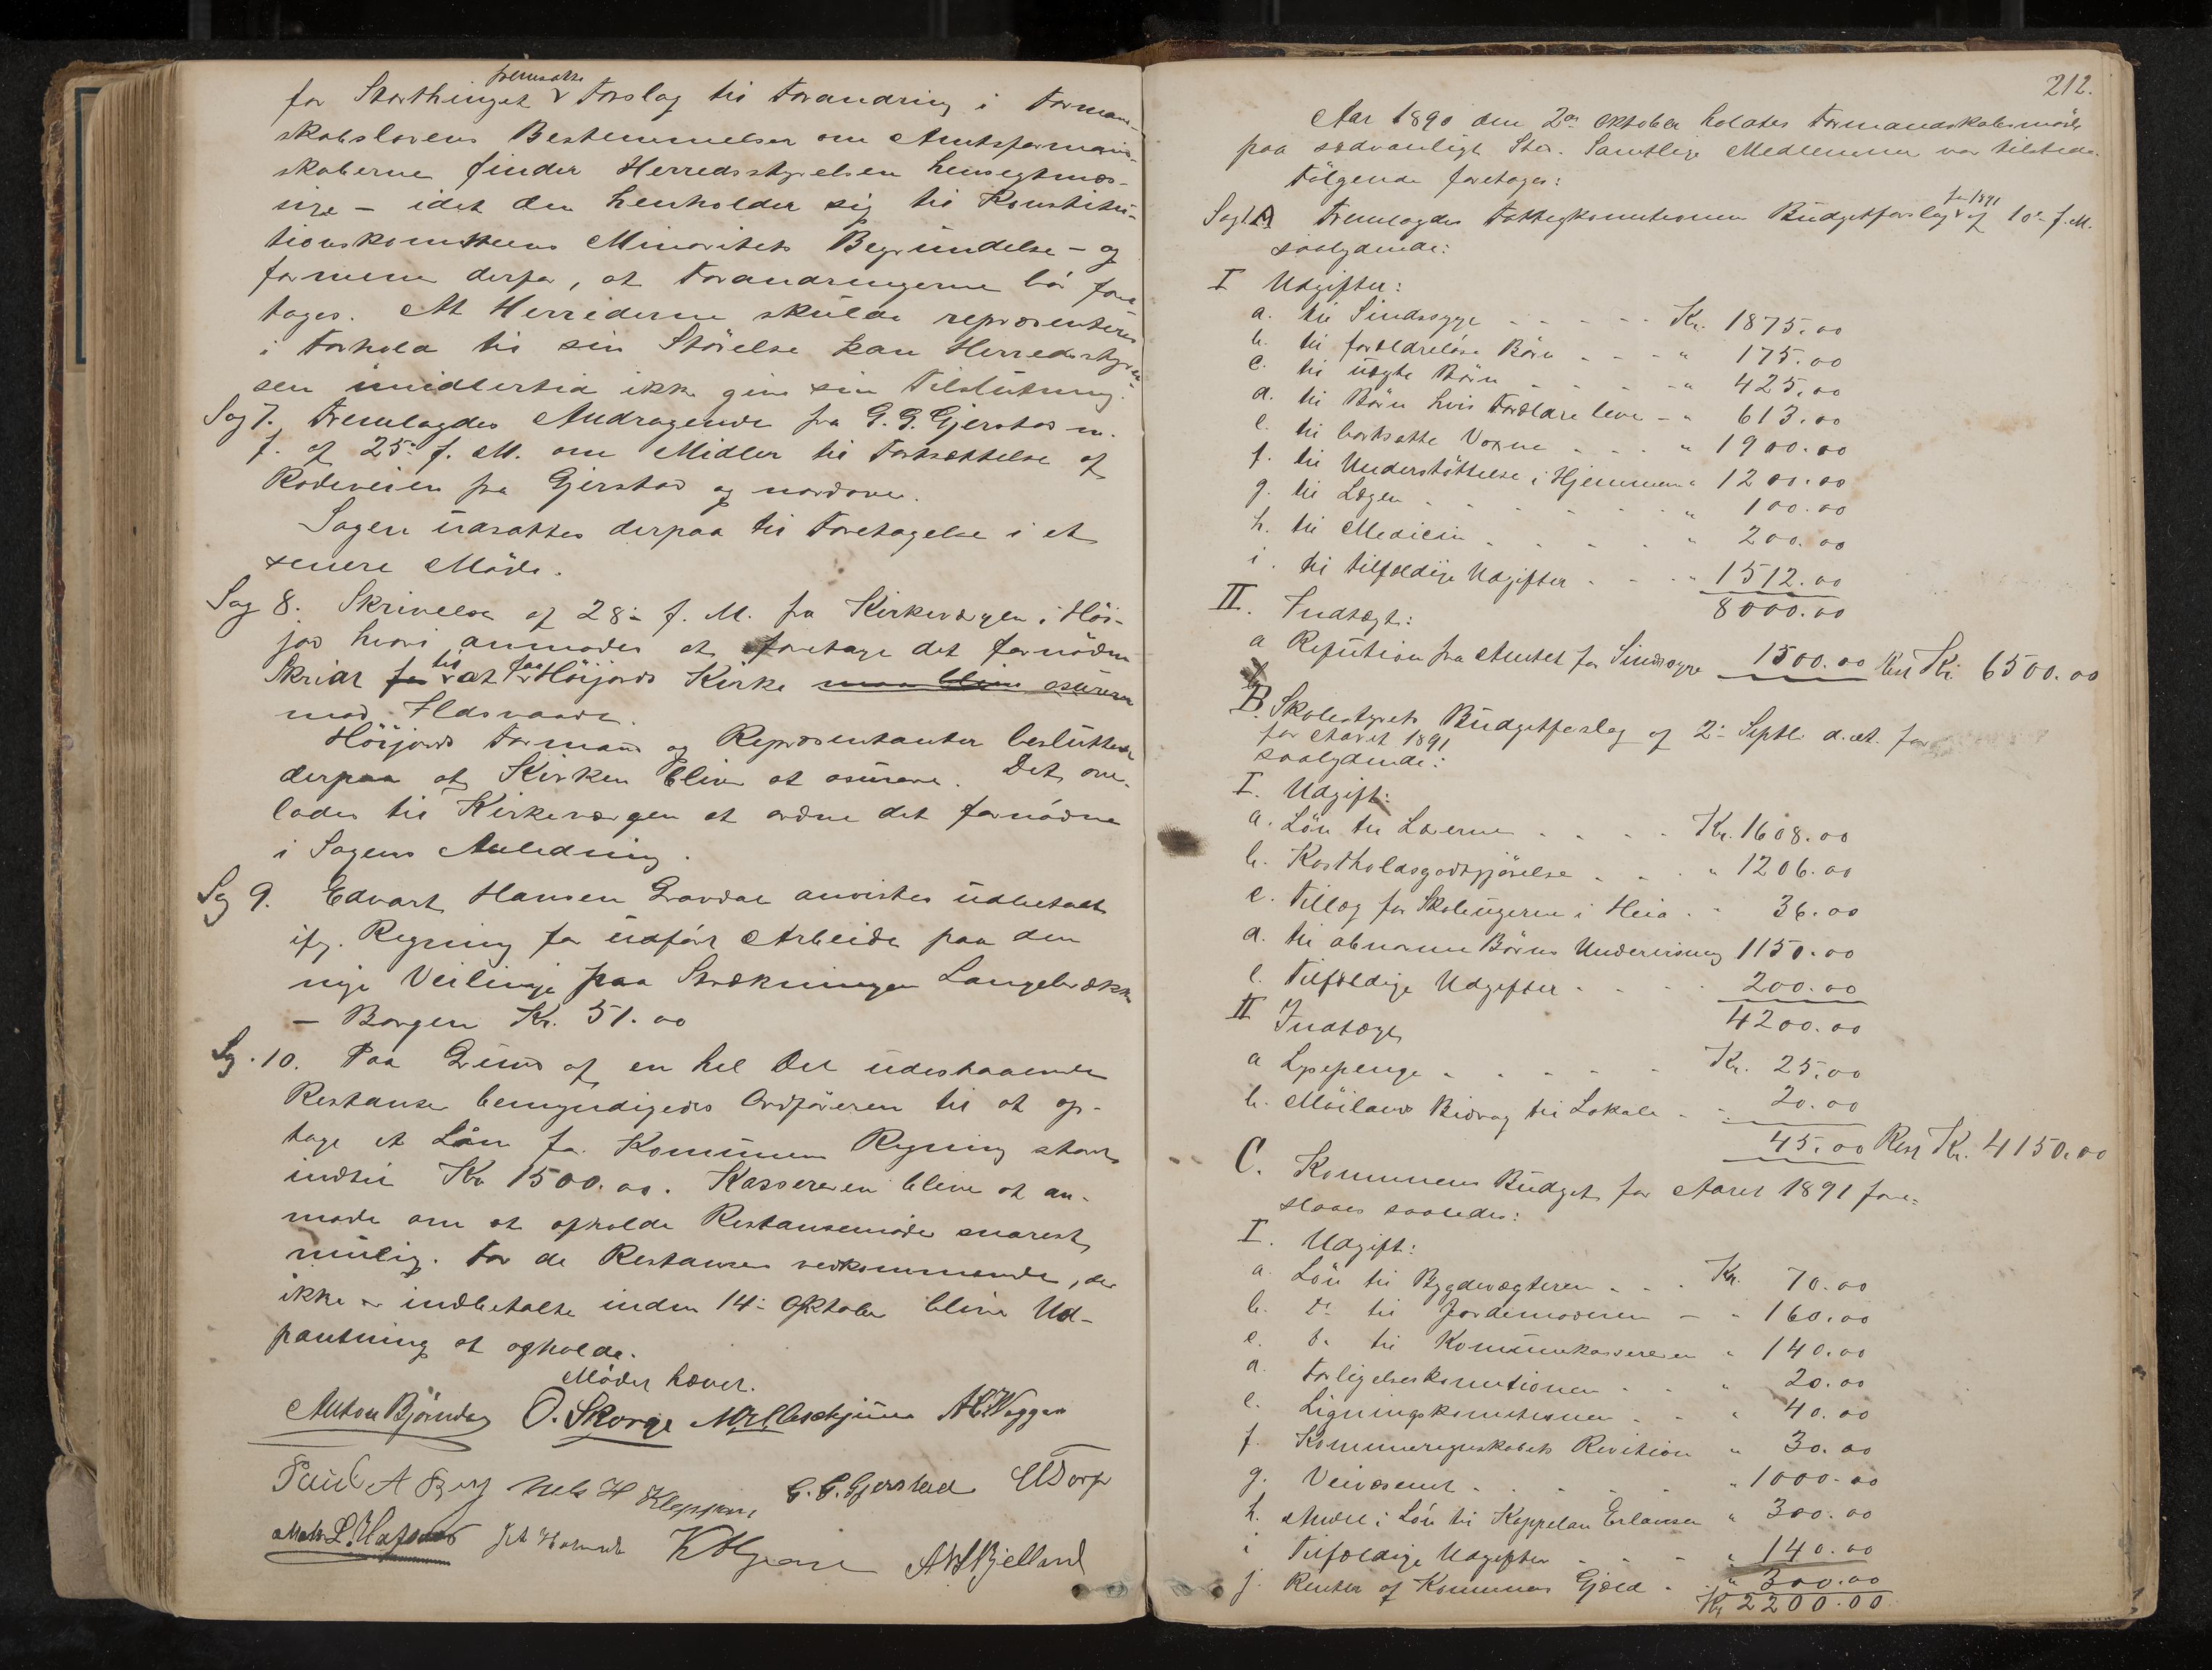 fremsatte
for Storthinget Forslag til Forandring i Formand-
skabslovens Bestemmelser om Amtsformand-
skaberne finder Herredsstyrelsen hensigtmæs-
sige – idet den henholder sig til Konstitu-
tionskomiteens Minoritets Begrundelse – og
formene derfor, at Forandringerne bör fore
tages. At Herrederne skulde repræsenteres
i Forhold til sin Störelse kan Herredsstyrel
sen imidlertid ikke give sin Tilslutning.
Sag 7. Fremlagdes Andragende fra G. G. Gjerstad m.
f. af 25de f. M. om Midler til Fortsættelse af
Rodeveien fra Gjerstad og nordover.
Sagen udsattes derpaa til Foretagelse i et
senere Möde.
Sag 8. Skrivelse af 28de f. M. fra Kirkeværgen i Höi-
jord hvori anmodes at foretage det fornödne
Skridt for til at faa Höijords Kirke maa blive assureret
mod Ildsvaade.
Höijords Formand og Repræsentanter besluttede
derpaa at Kirken bliver at assurere. Det over-
lades til Kirkeværgen at ordne det fornödne
i Sagens Anledning.
Sag 9. Edvart Hansen Gravdal anvistes udbetalt
ifg. Regning for udfört Arbeide paa den
nye Veilinje paa Strækningen Langebrække
– Borgen Kr. 51.00
Sag 10. Paa Grund af en hel Del udestaaende
Restanser bemyndigedes Ordföreren til at op-
tage et Laan for Kommunens Regning stort
indtil Kr 1500.00. Kassereren bliver at an-
mode om at afholde Restansemöde snarest
mulig. For de Restanser vedkommende, der
ikke er indbetalte inden 14de Oktober bliver Ud-
pantning at afholde.
Mödet hævet.
Anton Björndag O. Skorge
Paul A Berg Nels H Kleppan G. G. Gjerstad
L. Hafsnes A H Bjelland
212.
Aar 1890 den 2den Oktober holdtes Formandskabsmöde
paa sædvanligt Sted. Samtlige Medlemmer var tilstede.
Fölgende foretoges:
Sag 1 A Fremlagdes Fattigkomitionens Budgetforslag for 1891 af 10de f. M.
saalydende:
I Udgifter:
a. til Sindssyge - - - - - Kr. 1875.00
b. til forældrelöse Börn - - - " 175.00
c. til uægte Börn - - - - " 425.00
d. til Börn hvis Forældre leve - " 613.00
e. til bortsatte Voxne - - - " 1900.00
f. til Understöttelse i Hjemmene " 1200.00
g. til Lægen - - - - - " 100.00
h. til Medicin - - - - " 200.00
i. til tilfældige Udgifter - - - " 1512.00
8000.00
II. Indtægt:
a Refution fra Amtet for Sindssyge 1500.00 Rest Kr. 6500.00
B. Skolestyrets Budgetforslag af 2de Septbr. d. A. for
for Aaret 1891
saalydende:
I. Udgift:
a. Lön til Lærerne - - - - Kr. 1608.00
b. Kostholdsgodtgjörelse - - - " 1206.00
c. Tillæg for Skoleugerne i Heia - " 36.00
d. til abnorme Börns Undervisning 1150.00
e. Tilfældige Udgifter - - - - 200.00
4200.00
II Indtægt
a Lysepenge - - - - - Kr. 25.00
b. Möilands Bidrag til Lokale - - 20.00
45.00 Rest Kr. 4150.00
C. Kommunens Budget for Aaret 1891 fore-
slaaes saaledes:
I. Udgift:
a. Lön til Bygdevægteren - - - Kr. 70.00
b. Do til Jordemoderen - " 160.00
c. Do til Kommunekassereren " 140.00
d. Forligelseskomitionen - - " 20.00
e. Ligningskomitionen - - " 40.00
f. Kommuneregnskabets Revition " 30.00
g. Veivæsenet - - - - - " 1000.00
h. Andel i Lön til Kappelan Erlansen " 300.00
i Tilfældige Udgifter - - - " 140.00
j. Renter af Kommunens Gjæld - " 300.00
Kr 2200.00